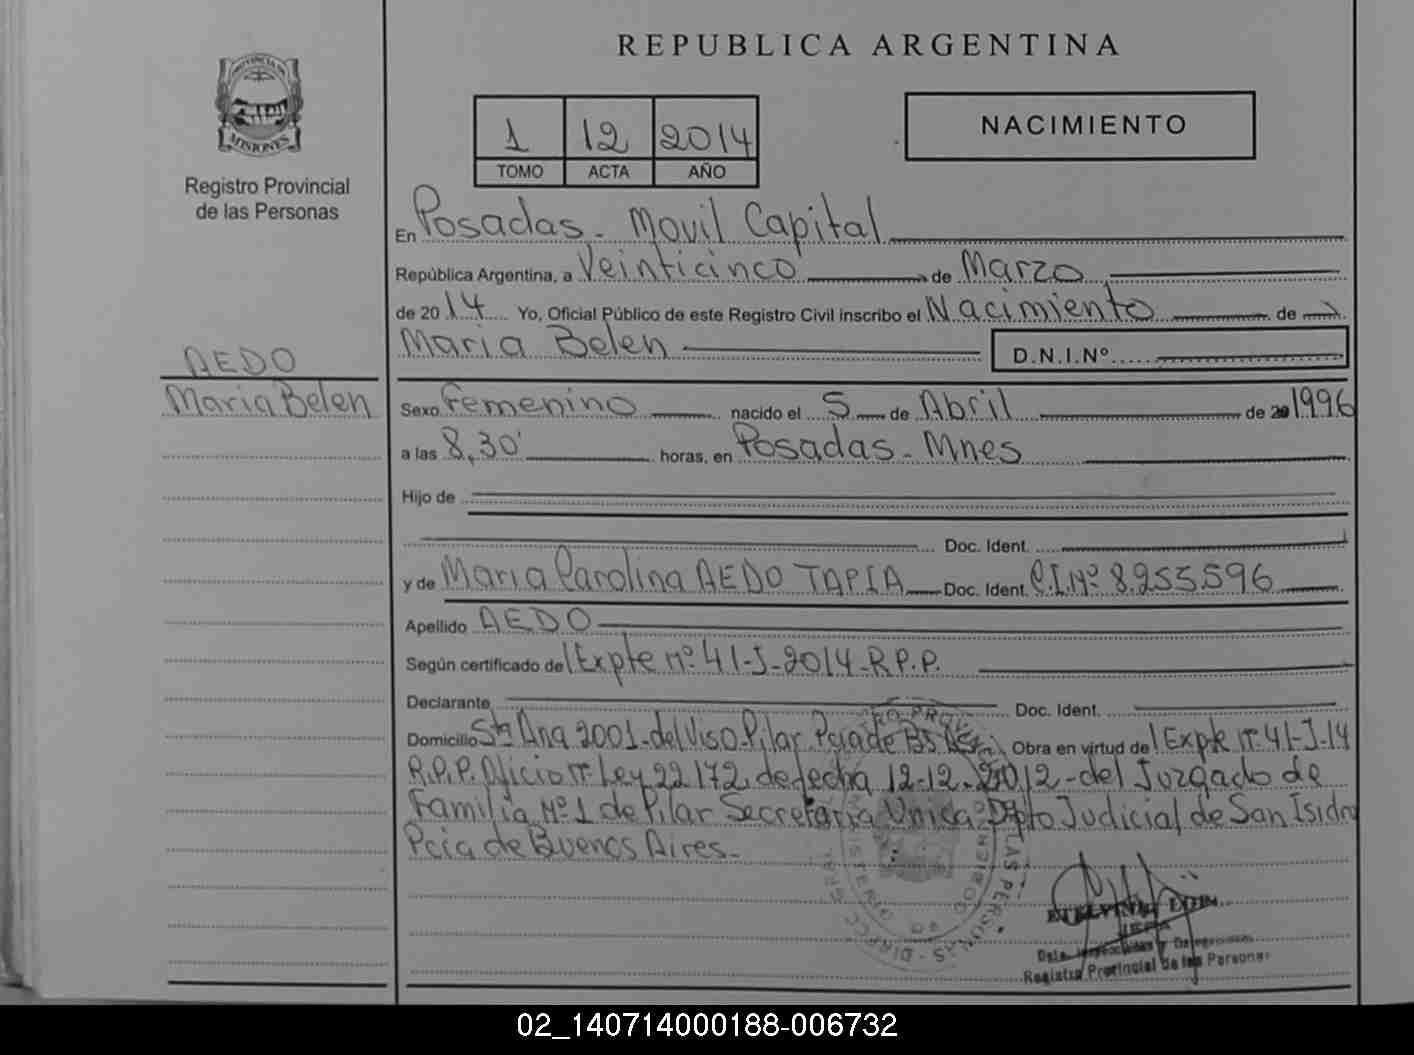 REPUBLICA ARGENTINA
PROVINCIA DE
MISIONES
Registro Provincial
de las Personas
1 12 2014
TOMO ACTA AÑO
NACIMIENTO
En Posadas - Movil Capital
República Argentina, a Veinticinco de Marzo
de 2014 Yo, Oficial Público de este Registro Civil inscribo el Nacimiento de
Maria Belen D.N.I.Nº
AEDO
Maria Belen
Sexo Femenino nacido el 5 de Abril de 20 1996
a las 8,30' horas, en Posadas - Mnes
Hijo de
Doc. Ident.
y de Maria Carolina AEDO TAPIA Doc. Ident. C.I.Nº 8.255.596
Apellido AEDO
Según certificado de Expte nº 41-J-2014-R.P.P.
Declarante Doc. Ident.
Domicilio Sta Ana 2001-del Viso-Pilar Pcia de Bs As. Obra en virtud de Expte nº 41-J-14
R.P.P. Oficio nº Ley 22.172 de fecha 12-12-2012-del Juzgado de
Familia Nº 1 de Pilar Secretaria Unica-Dpto Judicial de San Isidro
Pcia de Buenos Aires.-
LAS PERSONAS
Registro Provincial de las Personas
02_140714000188-006732